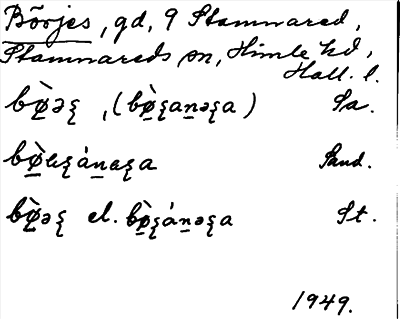 Börjes, gd, 9 Stamnared,
Stamnareds sn, Himle hd,
Hall. l.
bø̠̀əʂ , (bø̠̀ʂan̠əʂa) Sa.
bø̠̀ʂán̠əʂa Sand.
bø̠̀əʂ el. bø̠̀ʂán̠əʂa St.
1949.